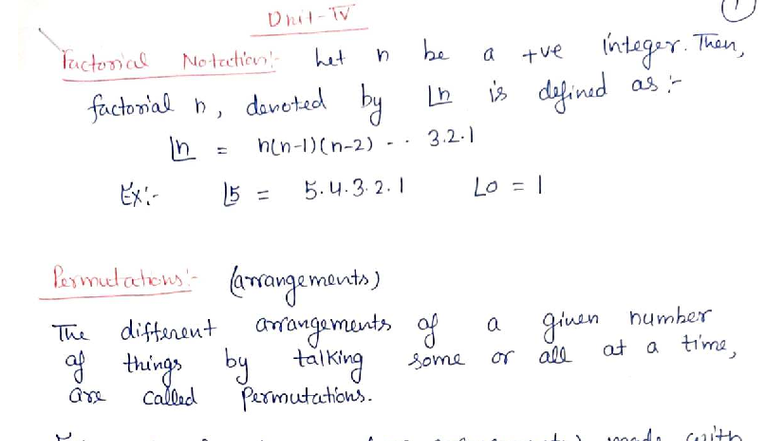 Unit-IV
1
Factorial Notation:- Let n be a +ve integer. Then,
factorial n, denoted by |n is defined as :-
|n = n(n-1)(n-2) - - 3.2.1
Ex:- |5 = 5.4.3.2.1 |0 = 1
Permutations:- (arrangements)
The different arrangements of a given number
of things by talking some or all at a time,
are called Permutations.
made with